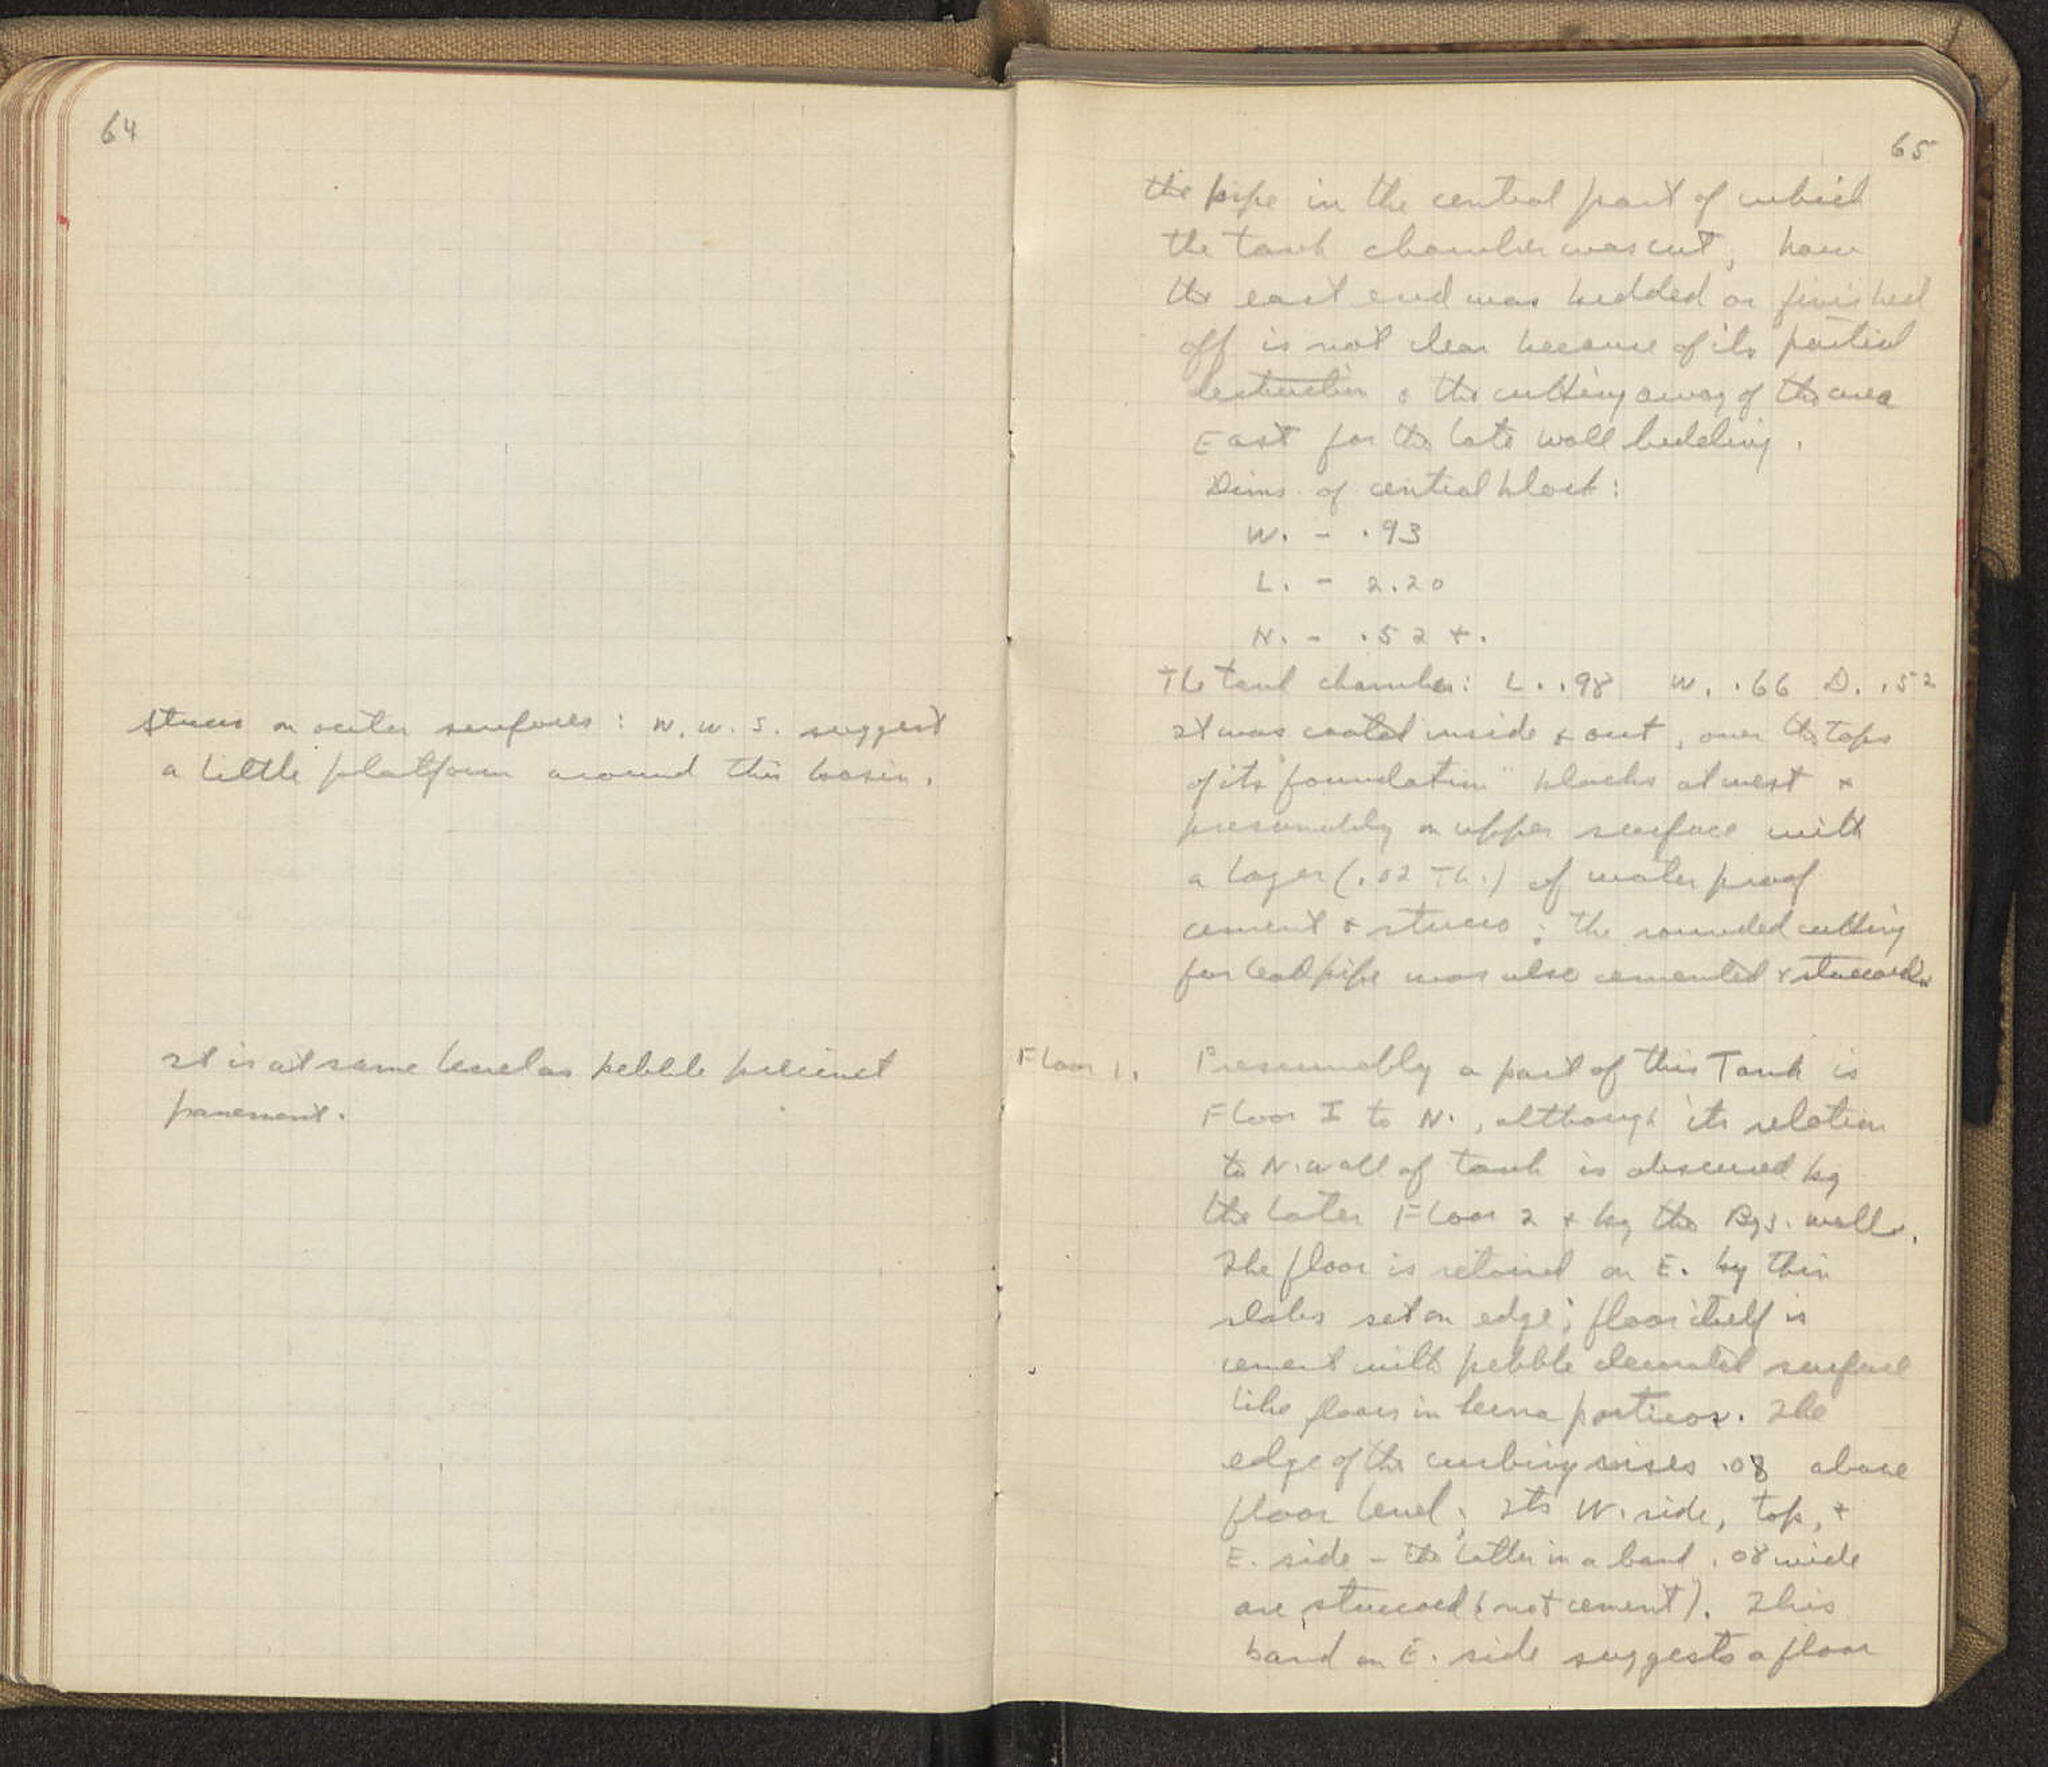 64
Stucco on outer surfaces: N. W. S. suggest
a little platform around this basin.
It is at same level as pebble precinct
pavement.
65
the pipe in the central part of which
the tank chamber was cut; how
the east end was bedded or finished
off is not clear because of its partial
destruction & the cutting away of the area
East for the late wall bedding.
Dims. of central block:
W. - .93
L. - 2.20
H. - .52 +.
The tank chamber: L. .98 W. .66 D. .52
It was coated inside & out, over the tops
of its "foundation" blocks at west &
presumably on upper surface with
a layer (.02 Th.) of water proof
cement & stucco; the rounded cutting
for lead pipe was also cemented & stuccoed.
Floor 1. Presumably a part of this Tank is
Floor I to N., although its relation
to N. wall of tank is obscured by
the later Floor 2 & by the Byz. wall.
The floor is retained on E. by thin
slabs set on edge; floor itself is
cement with pebble decorated surface
like floors in porticos. The
edge of the curbing rises .08 above
floor level; its W. side, top, &
E. side - the latter in a band .08 wide
are stuccoed (not cement). This
band on E. side suggests a floor